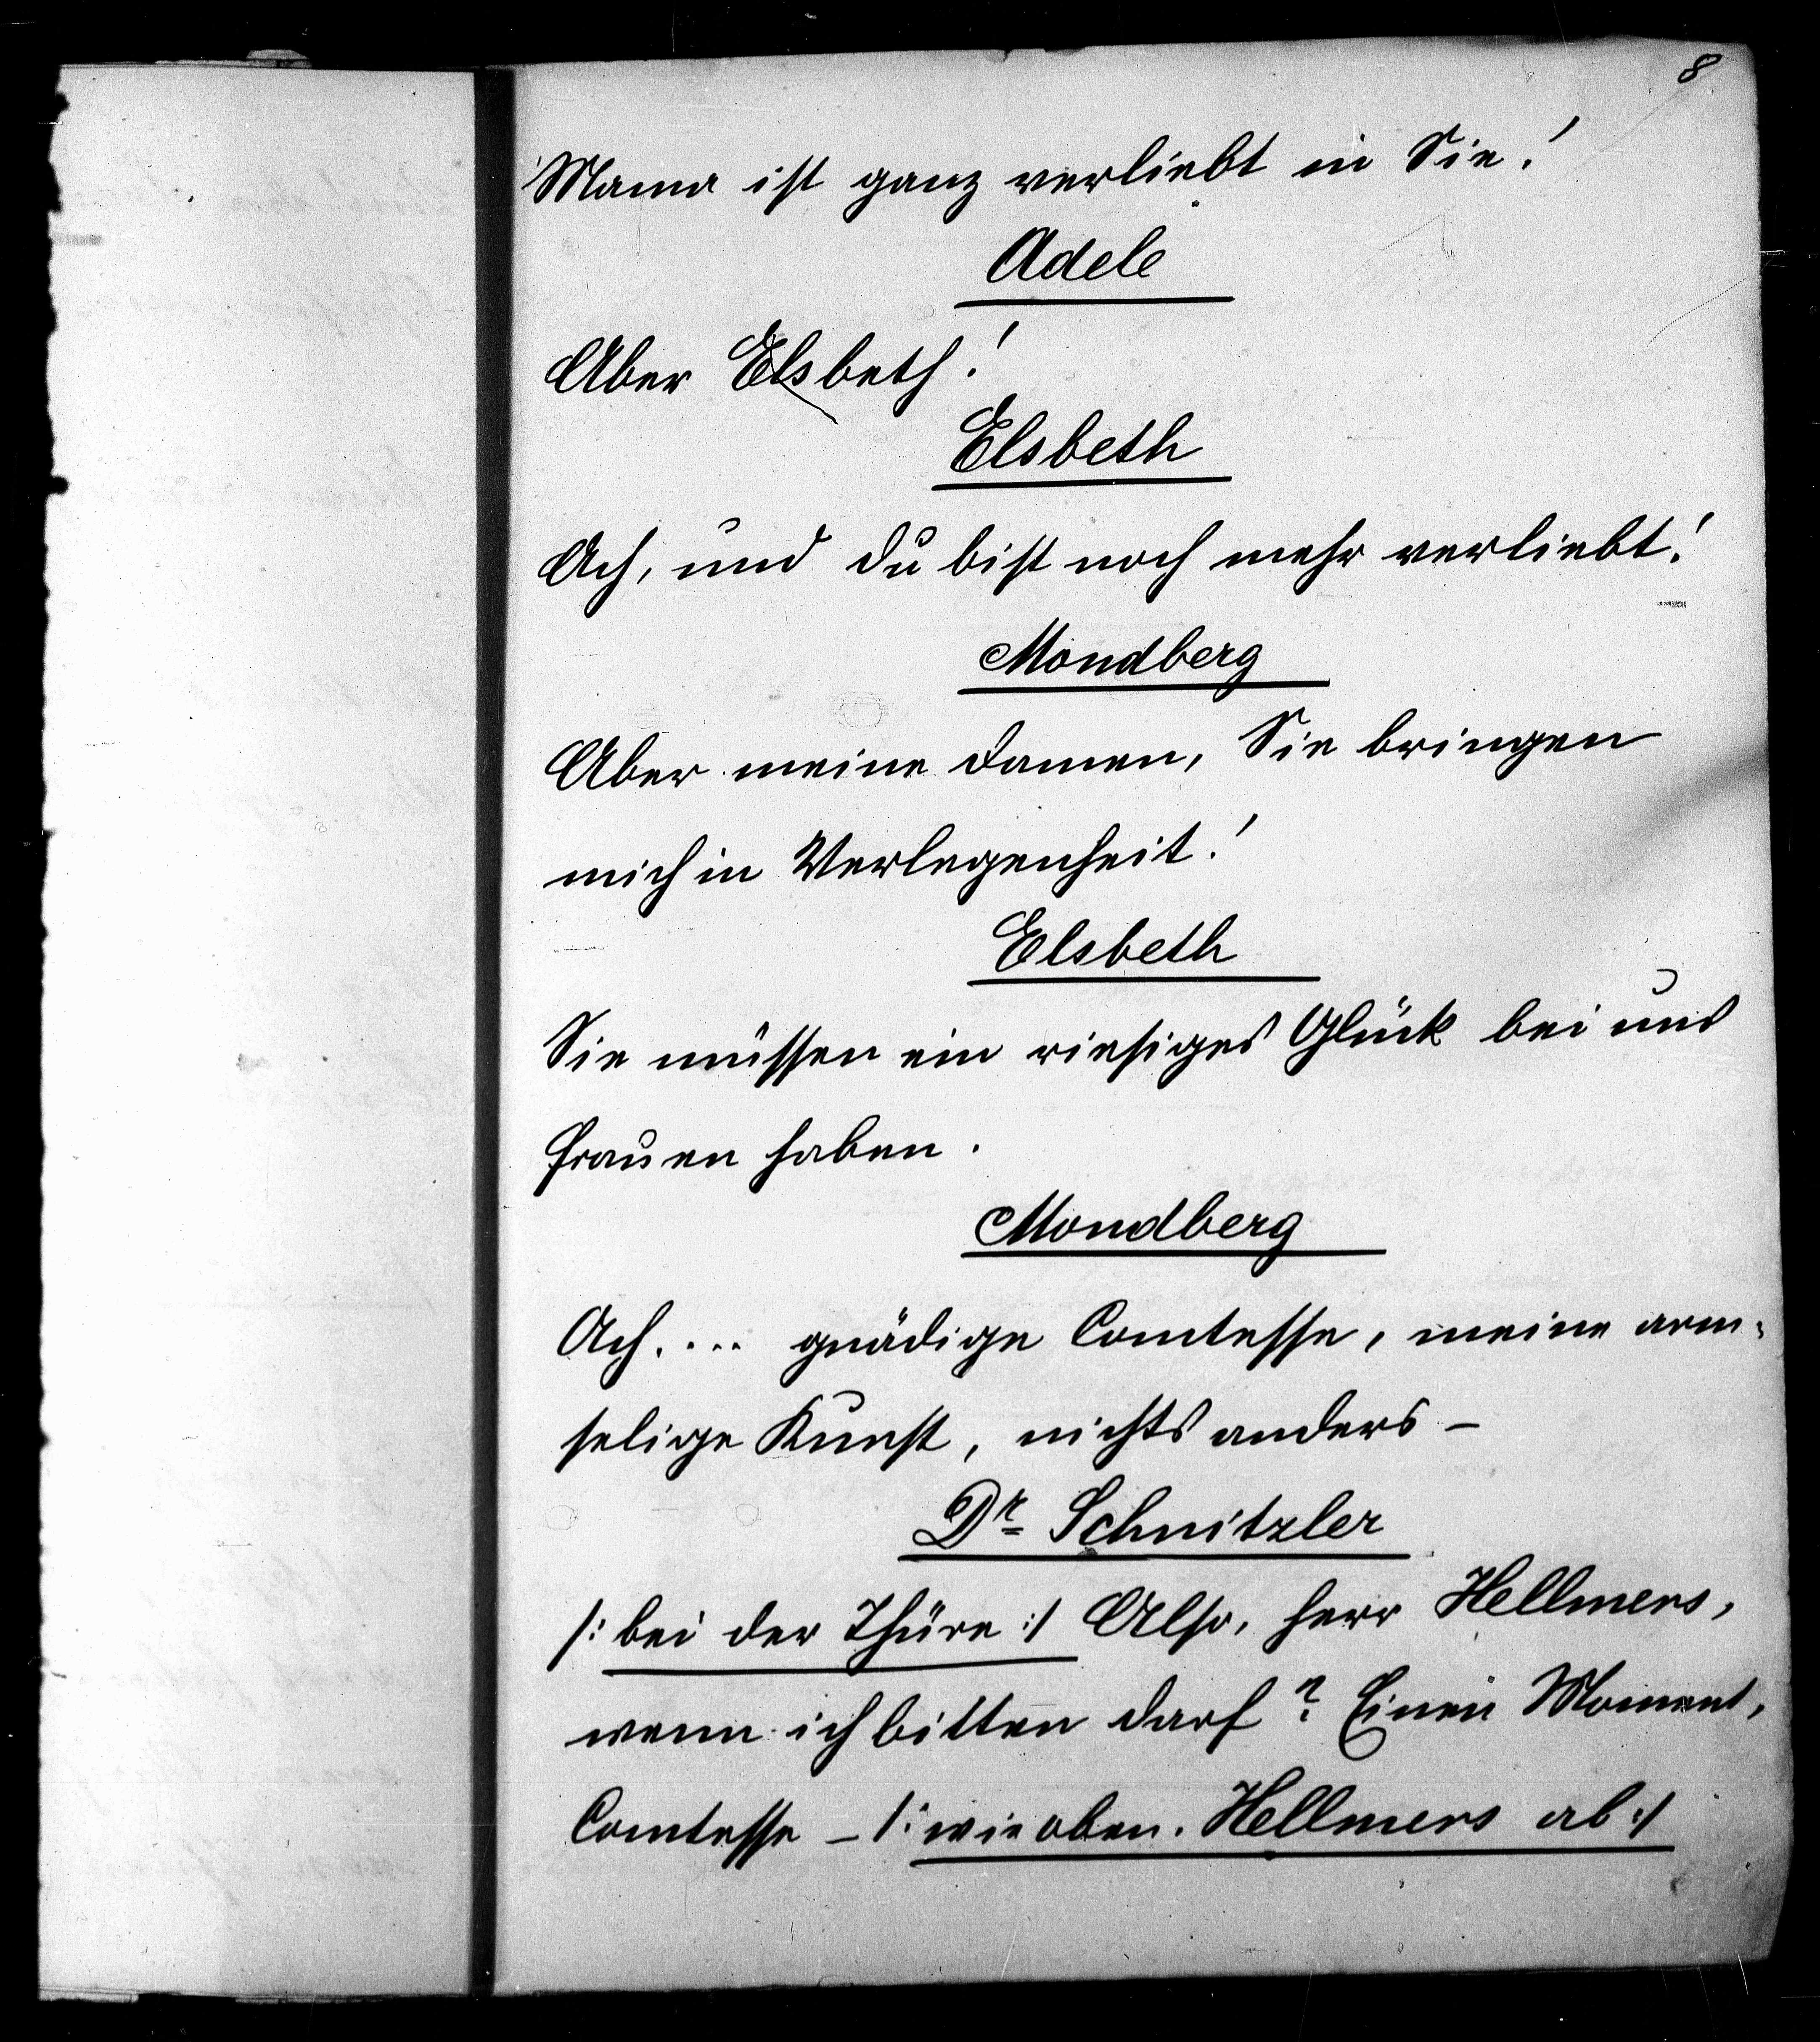 8
Mama ist ganz verliebt in Sie!
Adele
Aber Elsbeth!
Elsbeth
Ach, und du bist noch mehr verliebt!
Mondberg
Aber meine Damen, Sie bringen
mich in Verlegenheit!
Elsbeth
Sie müssen ein riesiges Glück bei uns
Frauen haben.
Mondberg
Ach.... gnädige Comtesse, meine arm-
selige Kunst, nichts anders –
Dr. Schnitzler
/: bei der Thüre :/ Also, Herr Hellmers,
wenn ich bitten darf? Einen Moment,
Comtesse – /: wie oben. Hellmers ab :/